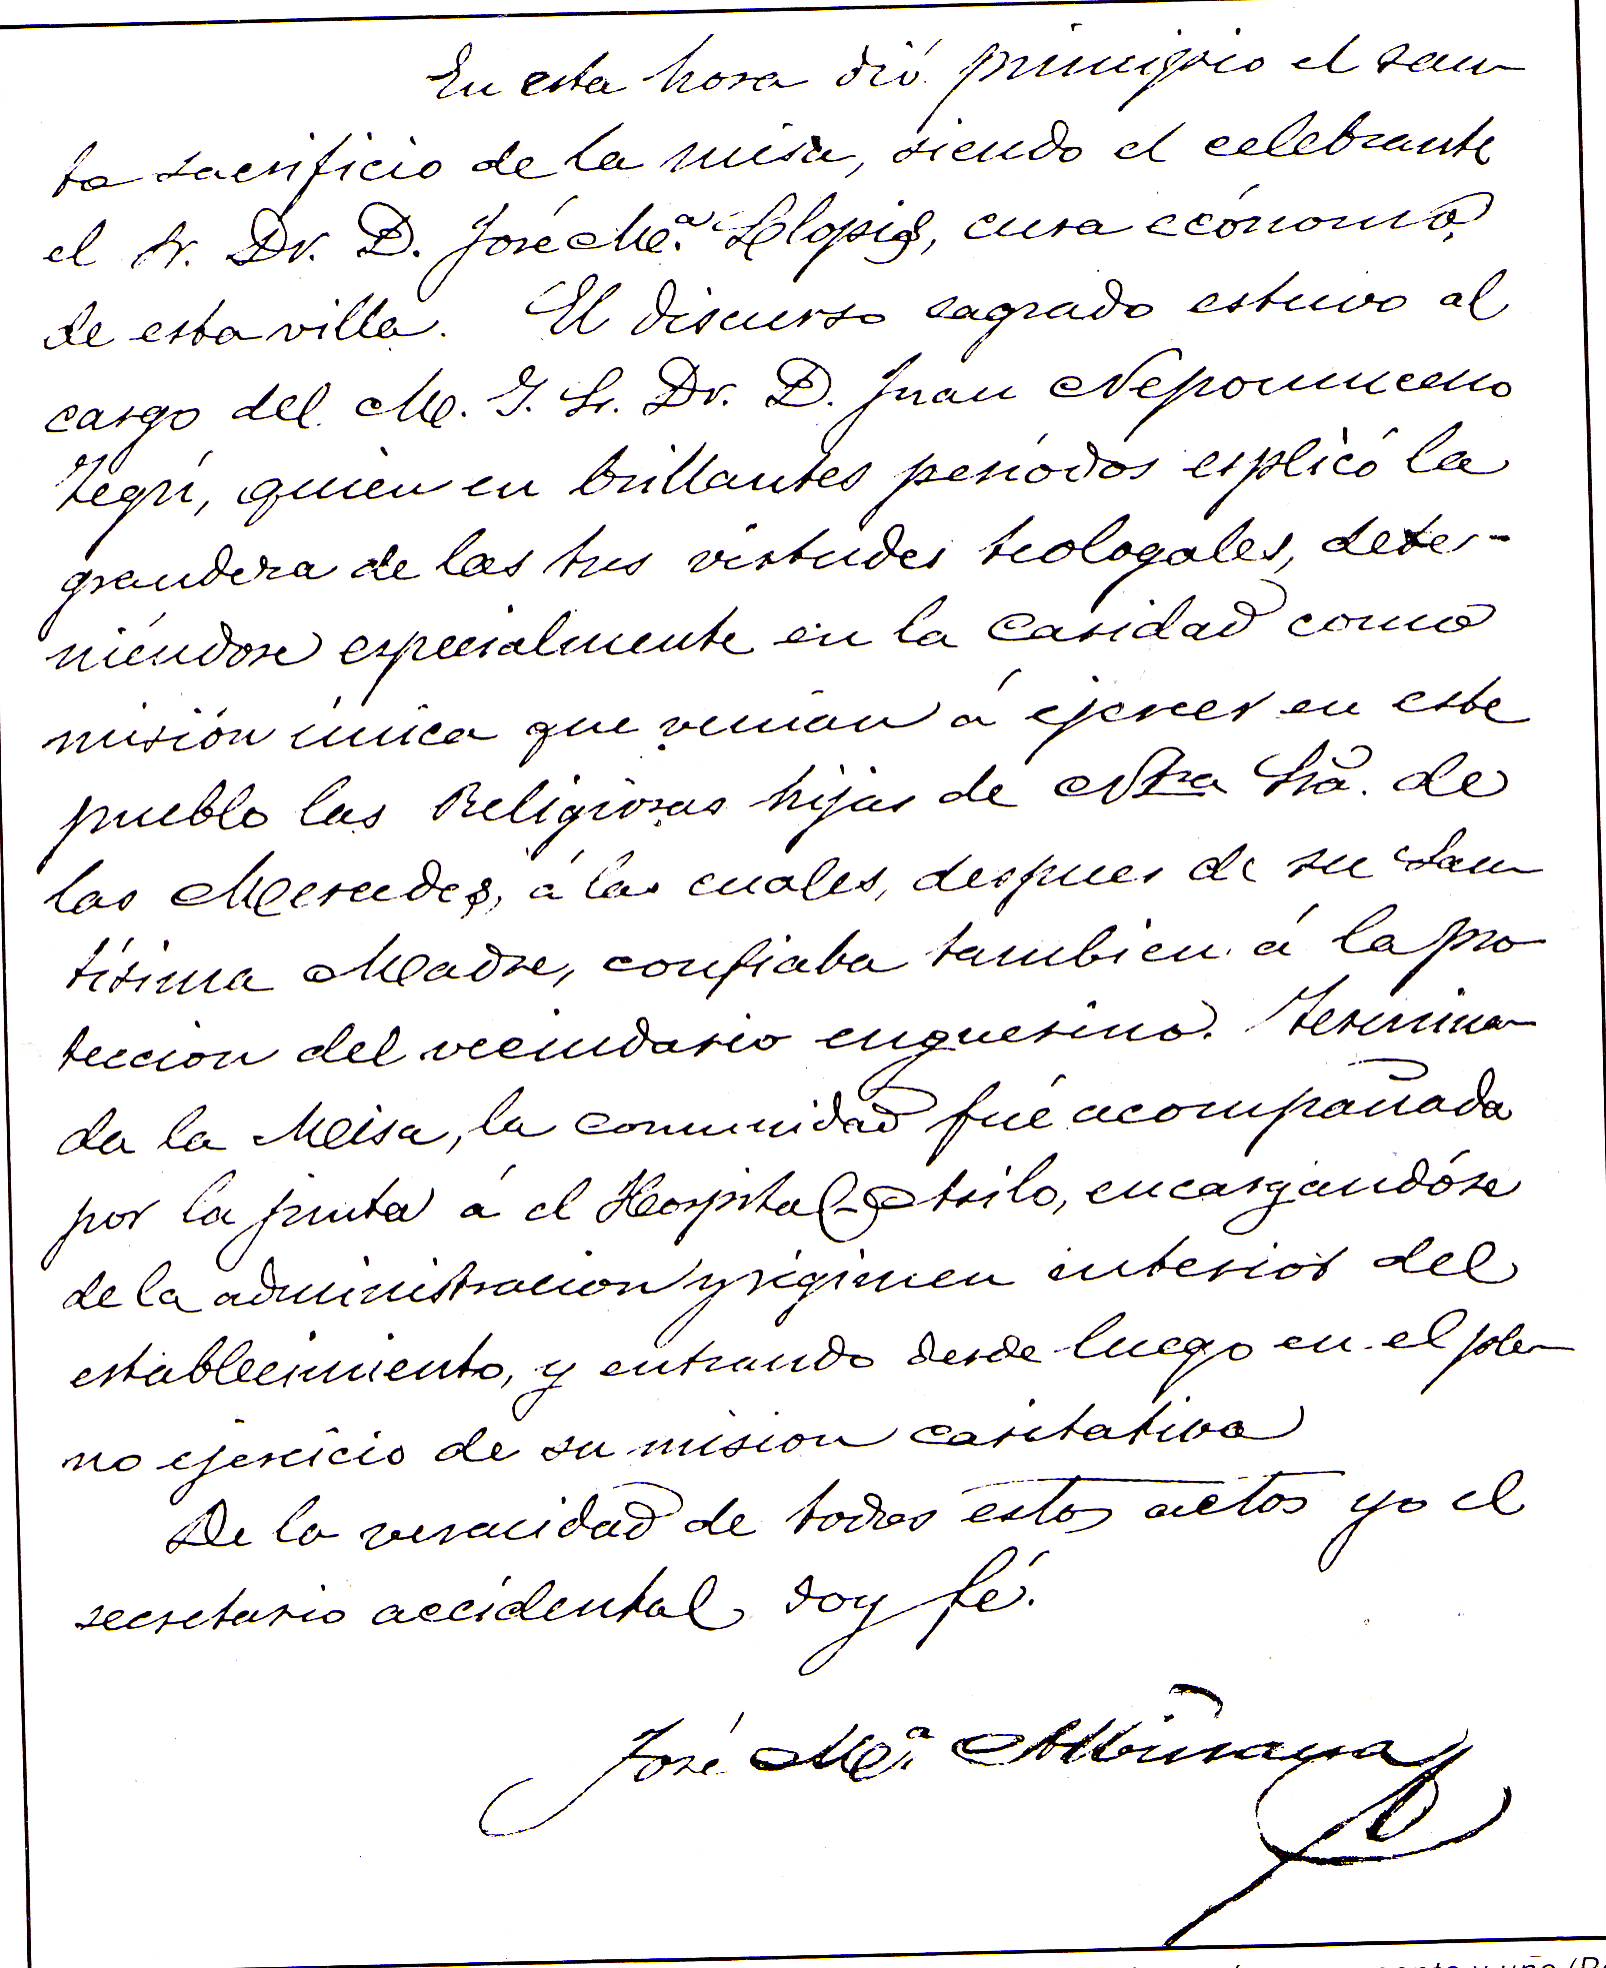 En esta hora dió principio el san
to sacrificio de la misa, siendo el celebrante
el Sr. Dr. D. José Mª. Llopis, cura ecónomo,
de esta villa. El discurso sagrado estuvo al
cargo del M. I. Sr. Dr. D. Juan Nepomuceno
Zegrí, quien en brillantes períodos esplicó la
grandeza de las tres virtudes teologales, dete-
niéndose especialmente en la Caridad como
misión única que venían á ejercer en este
pueblo las Religiosas hijas de Ntra Sra. de
las Mercedes, á las cuales, despues de su San
tísima Madre, confiaba tambien á la pro
teccion del vecindario enguerino. Termina
da la Misa, la comunidad fué acompañada
por la junta á el Hospital-Asilo, encargandóse
de la administracion y régimen interior del
establecimiento, y entrando desde luego en el ple
no ejercicio de su mision caritativa
De la veracidad de todos estos actos yo el
secretario accidental doy fé.
José Mª. Miñana